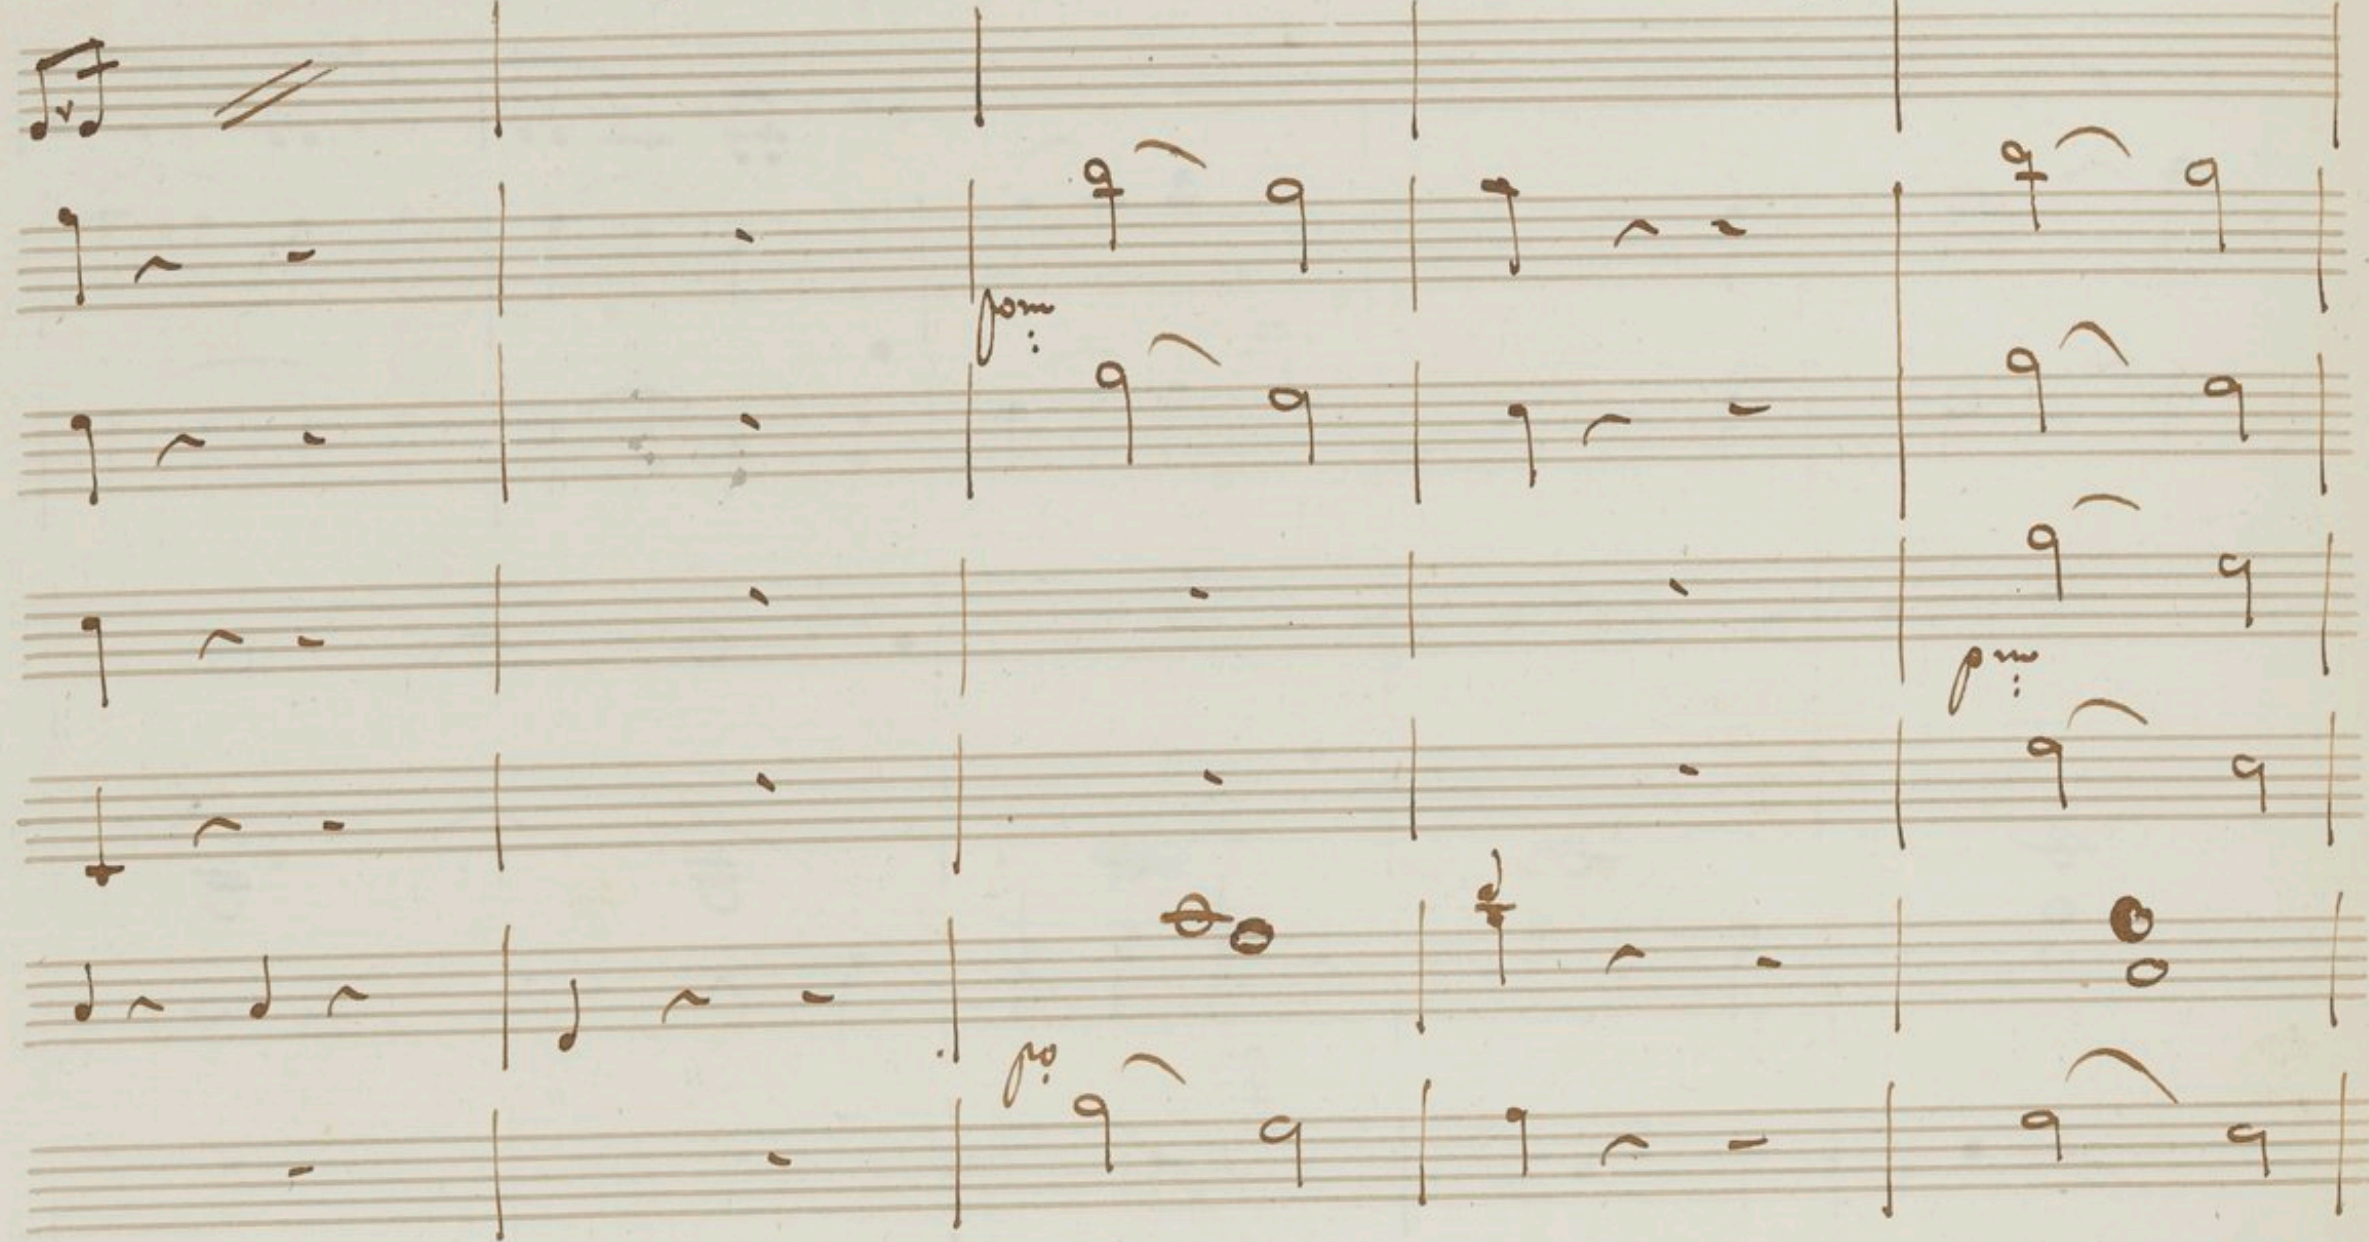 pom:
pm:
po: